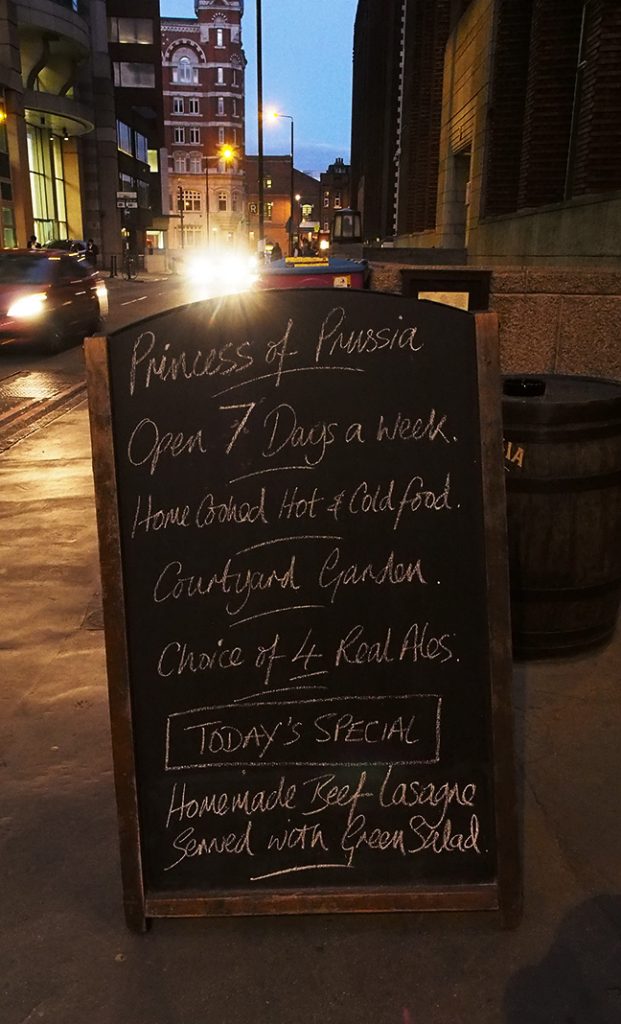 Princess of Prussia
Open 7 Days a week.
Home Cooked Hot & Cold food.
Courtyard Garden.
Choice of 4 Real Ales.
TODAY'S SPECIAL
Homemade Beef Lasagne
Served with Green Salad.
IA